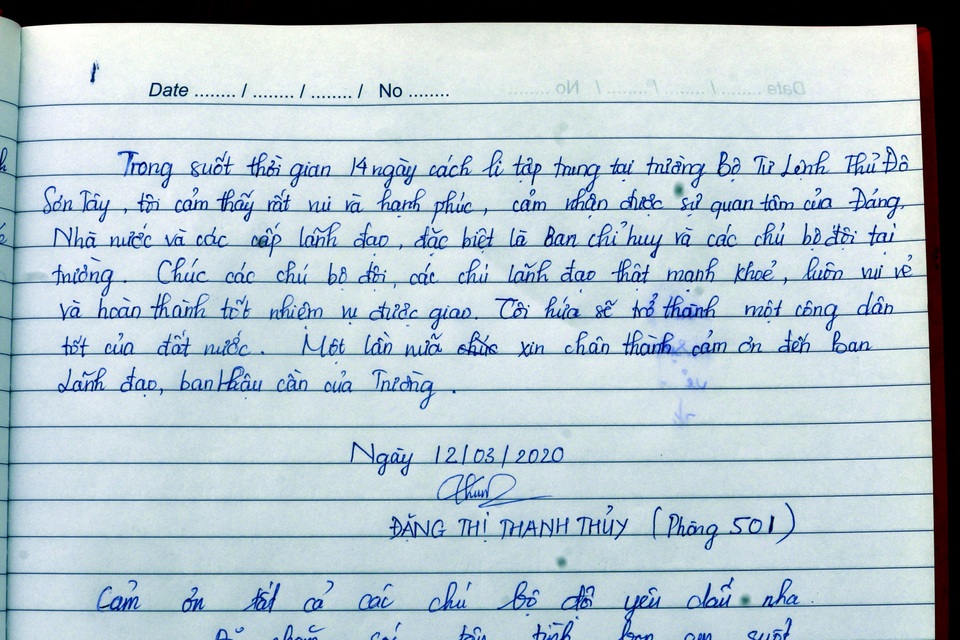 Date ........ / ........ / ........ / No ........
Trong suốt thời gian 14 ngày cách li tập trung tại trường Bộ Tư Lệnh Thủ Đô
Sơn Tây, tôi cảm thấy rất vui và hạnh phúc, cảm nhận được sự quan tâm của Đảng,
Nhà nước và các cấp lãnh đạo, đặc biệt là Ban chỉ huy và các chú bộ đội tại
trường. Chúc các chú bộ đội, các chú lãnh đạo thật mạnh khoẻ, luôn vui vẻ
và hoàn thành tốt nhiệm vụ được giao. Tôi hứa sẽ trở thành một công dân
tốt của đất nước. Một lần nữa xin chân thành cảm ơn đến Ban
Lãnh đạo, ban Hậu cần của Trường.
Ngày 12/03/2020
ĐẶNG THỊ THANH THỦY (Phòng 501)
Cảm ơn tất cả các chú bộ đô yêu dấu nha